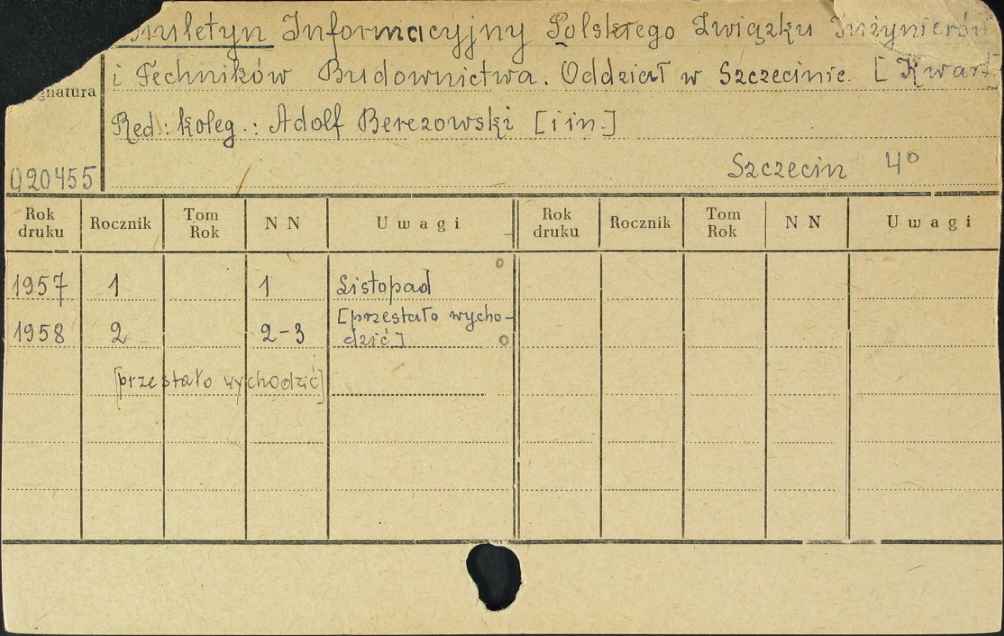 Biuletyn Informacyjny Polskiego Związku Inżynierów
i Techników Budownictwa. Oddział w Szczecinie. [Kwart.
Sygnatura
Red: koleg.: Adolf Berezowski [i in.]
Szczecin 4°
020455
Rok druku Rocznik Tom Rok NN Uwagi Rok druku Rocznik Tom Rok NN Uwagi
1957 1 1 Listopad
1958 2 2-3 [przestało wycho-
dzić]
[przestało wychodzić]